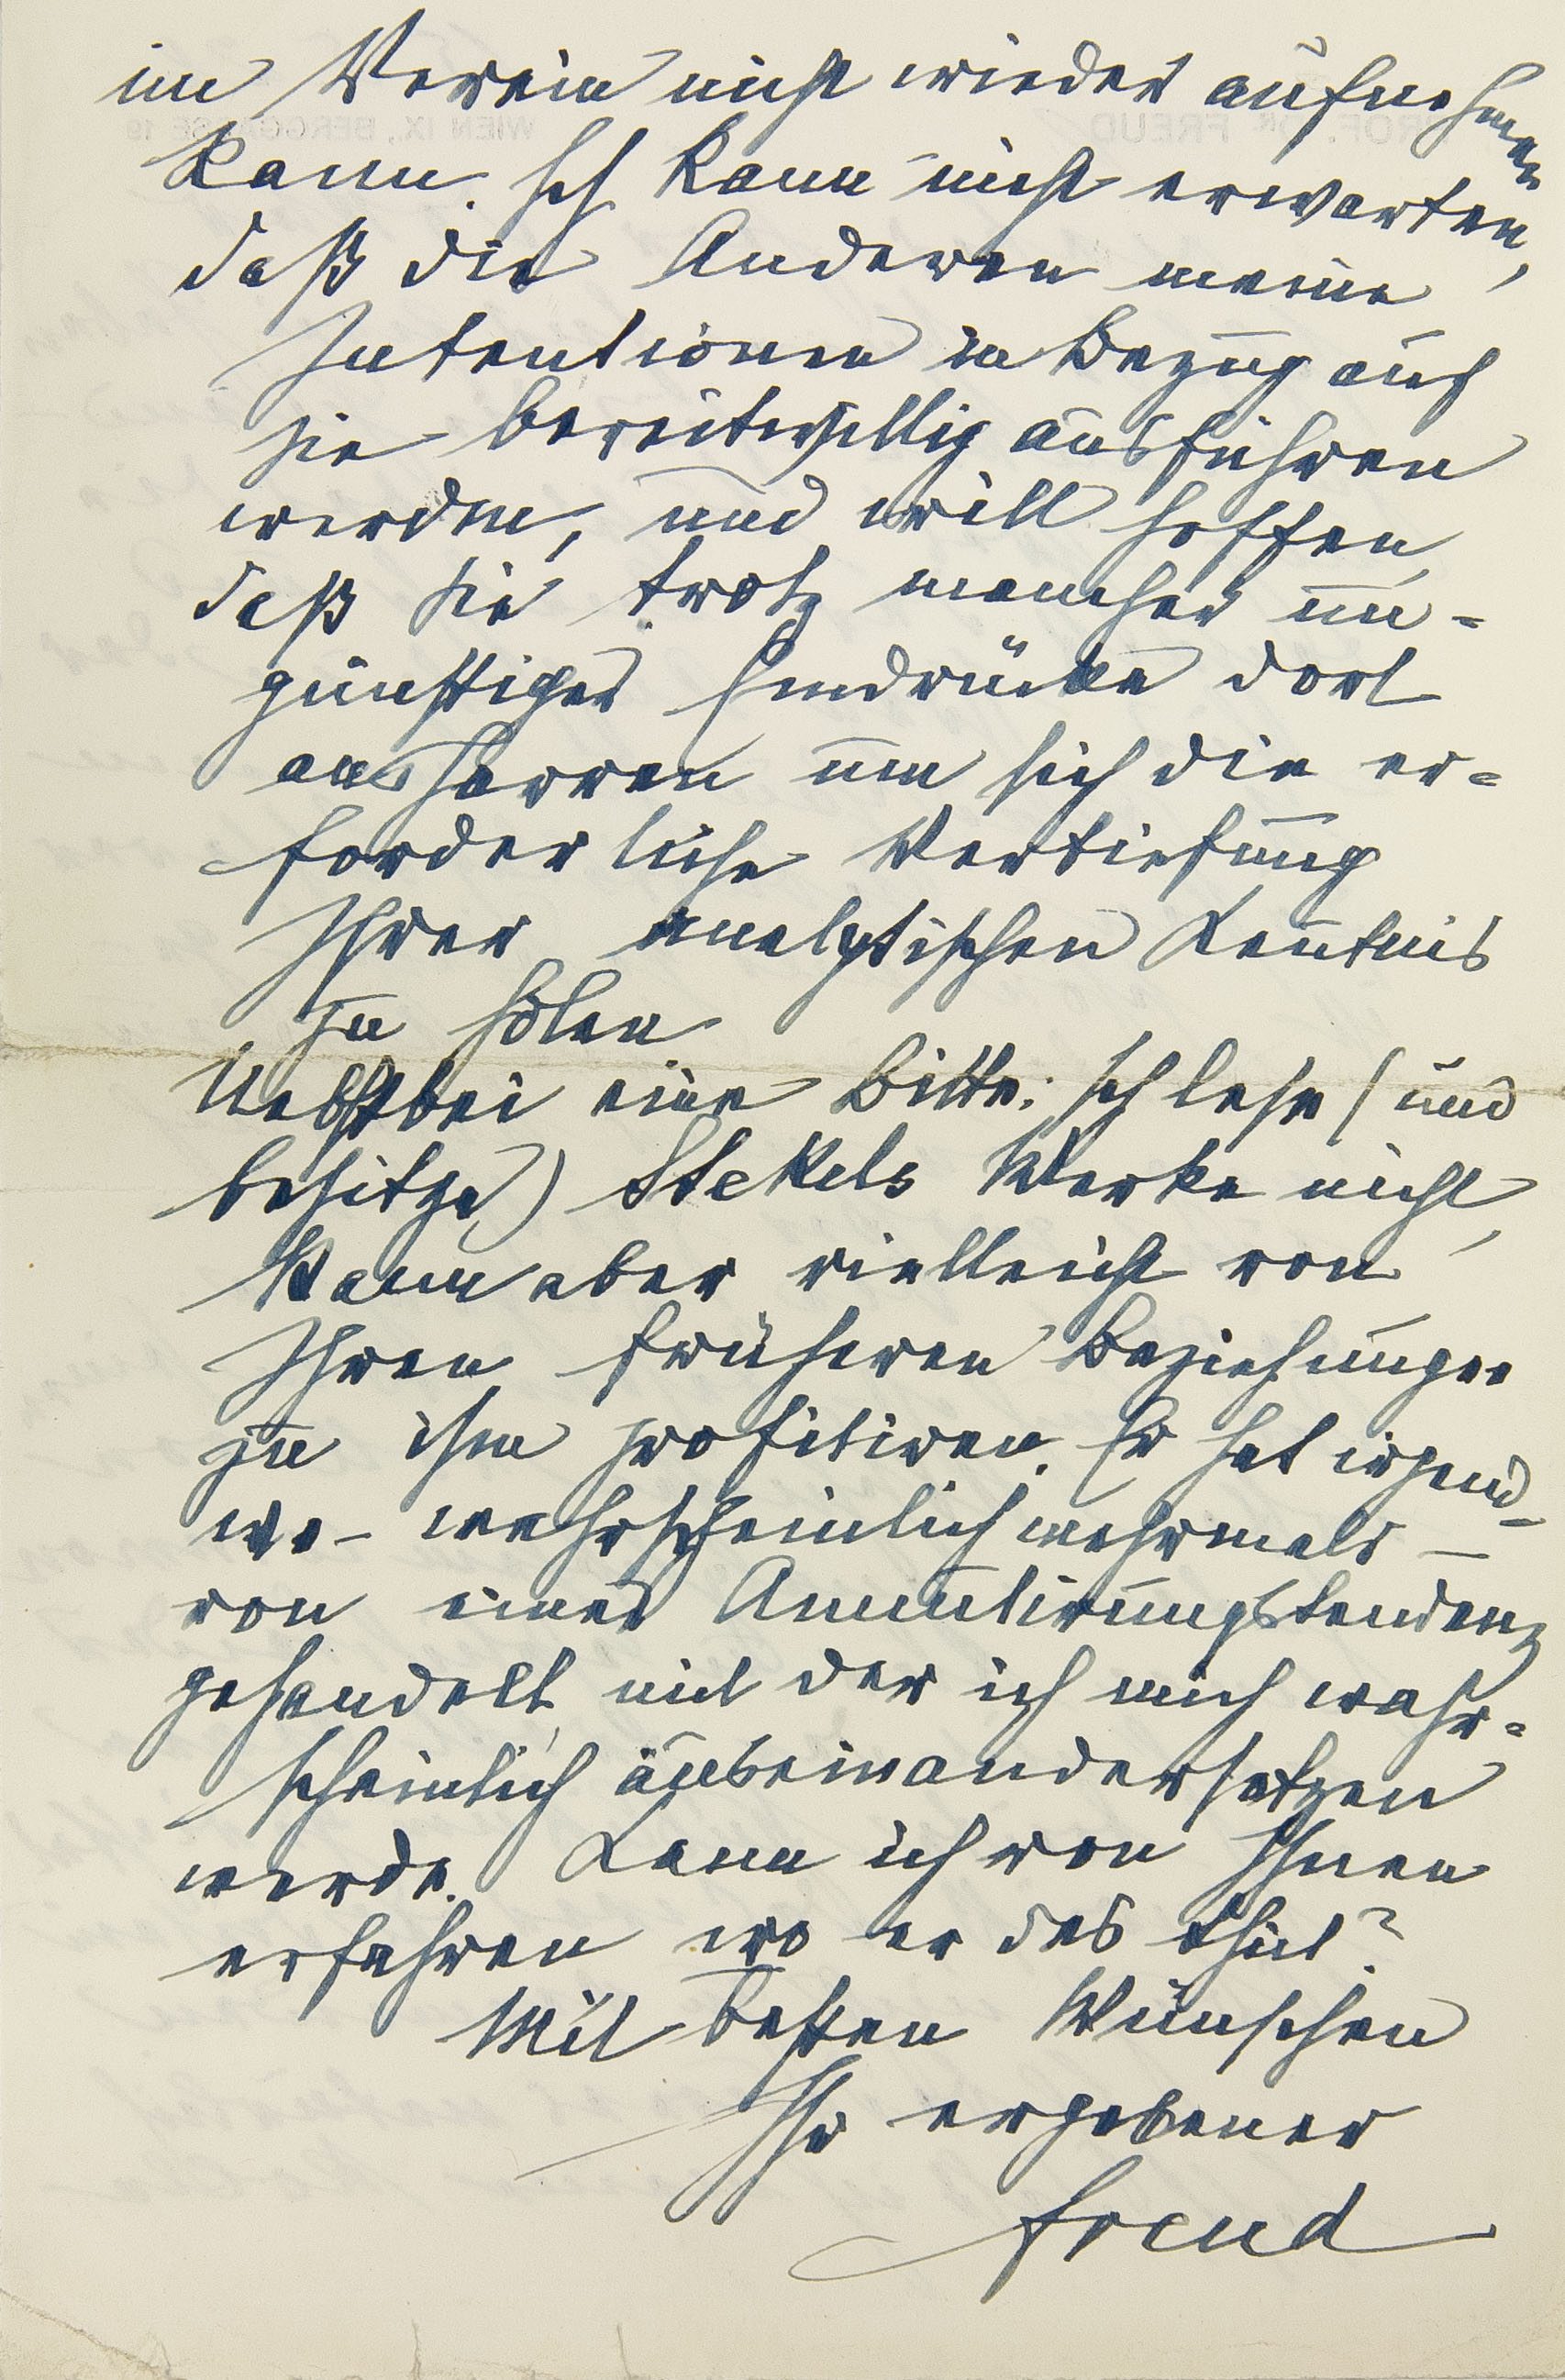 im Verein nicht wieder aufnehmen
kann. Ich kann nicht erwarten,
daß die Anderen meine
Intentionen in Bezug auf
sie bereitwillig ausführen
werden, und will hoffen,
daß Sie trotz mancher un-
günstiger Eindrücke dort
ausharren um sich die er-
forderliche Vertiefung
Ihrer analytischen Kenntnis
zu holen
Nebstbei eine Bitte: Ich lese (und
besitze) Stekels Werke nicht,
kann aber vielleicht von
Ihren früheren Beziehungen
zu ihm profitiren. Er hat irgend-
wo – wahrscheinlich mehrmals –
von einer Annullirungstendenz
gehandelt, mit der ich mich wahr-
scheinlich auseinandersetzen
werde. Kann ich von Ihnen
erfahren wo er das thut?
Mit besten Wünschen
Ihr ergebener
Freud
PROF. DR. FREUD WIEN IX., BERGGASSE 19